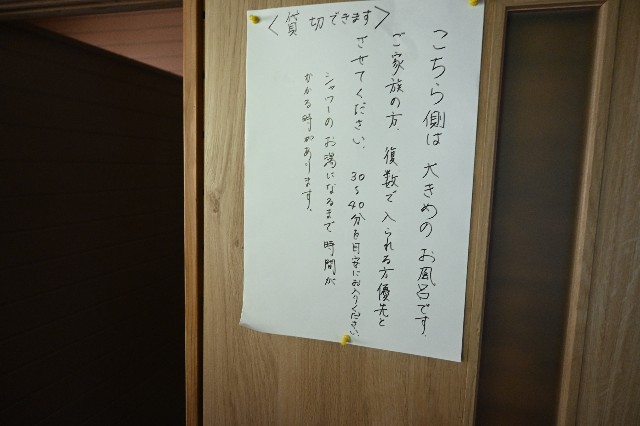 〈貸切できます〉
こちら側は大きめのお風呂です。
ご家族の方、復数で入られる方優先と
させてください。 30〜40分を目安にお入りください。
シャワーのお湯になるまで時間が
かかる時があります。